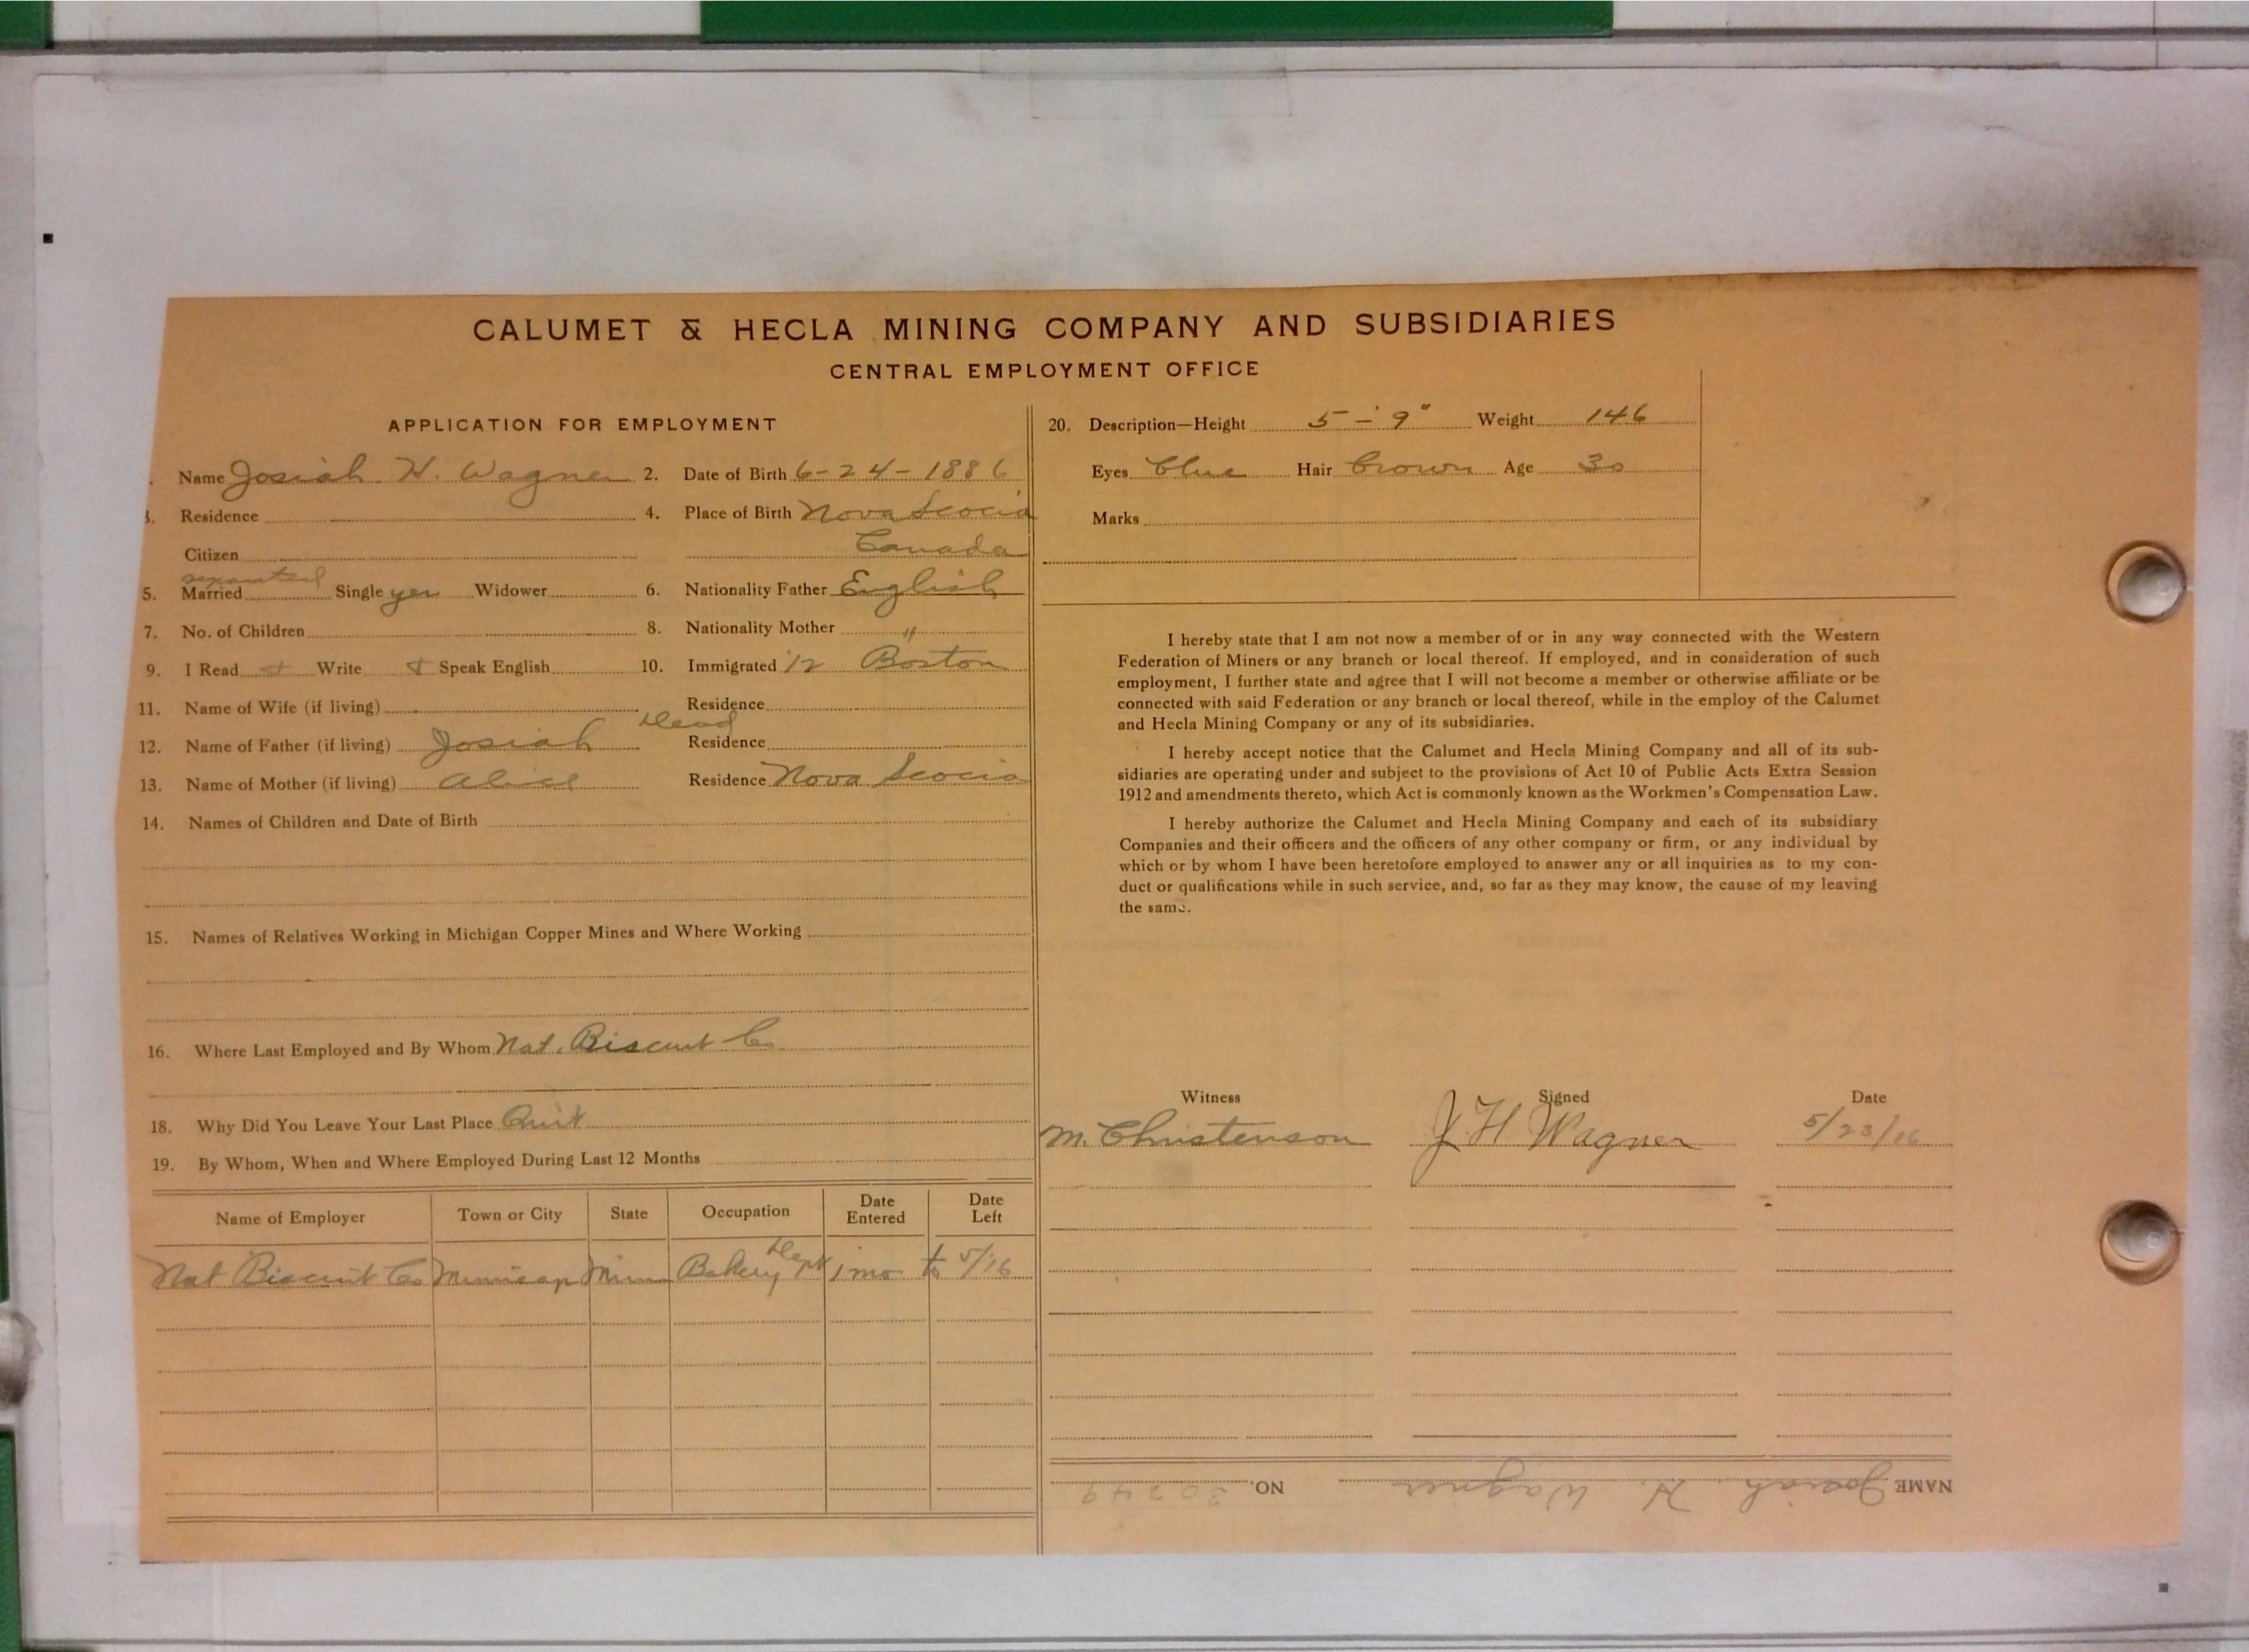 CALUMET & HECLA MINING COMPANY AND SUBSIDIARIES
CENTRAL EMPLOYMENT OFFICE
APPLICATION FOR EMPLOYMENT
Name Josiah H. Wagner 2. Date of Birth 6-24-1886
3. Residence 4. Place of Birth Nova Scocia
Citizen Canada
separated
5. Married Single yes Widower 6. Nationality Father English
7. No. of Children 8. Nationality Mother "
9. I Read + Write + Speak English 10. Immigrated '12 Boston
11. Name of Wife (if living) Residence
12. Name of Father (if living) Josiah Dead Residence
13. Name of Mother (if living) Alice Residence Nova Scocia
14. Names of Children and Date of Birth
15. Names of Relatives Working in Michigan Copper Mines and Where Working
16. Where Last Employed and By Whom Nat. Biscuit Co.
18. Why Did You Leave Your Last Place Quit
19. By Whom, When and Where Employed During Last 12 Months
Name of Employer Town or City State Occupation Date Entered Date Left
Nat Biscuit Co Minn Bakery Dept 1 mo to 5/16
20. Description—Height 5-'9" Weight 146
Eyes blue Hair brown Age 30
Marks
I hereby state that I am not now a member of or in any way connected with the Western
Federation of Miners or any branch or local thereof. If employed, and in consideration of such
employment, I further state and agree that I will not become a member or otherwise affiliate or be
connected with said Federation or any branch or local thereof, while in the employ of the Calumet
and Hecla Mining Company or any of its subsidiaries.
I hereby accept notice that the Calumet and Hecla Mining Company and all of its sub-
sidiaries are operating under and subject to the provisions of Act 10 of Public Acts Extra Session
1912 and amendments thereto, which Act is commonly known as the Workmen's Compensation Law.
I hereby authorize the Calumet and Hecla Mining Company and each of its subsidiary
Companies and their officers and the officers of any other company or firm, or any individual by
which or by whom I have been heretofore employed to answer any or all inquiries as to my con-
duct or qualifications while in such service, and, so far as they may know, the cause of my leaving
the same.
Witness Signed Date
M. Christenson J. H. Wagner 5/23/16
NAME Josiah H. Wagner NO. 30249